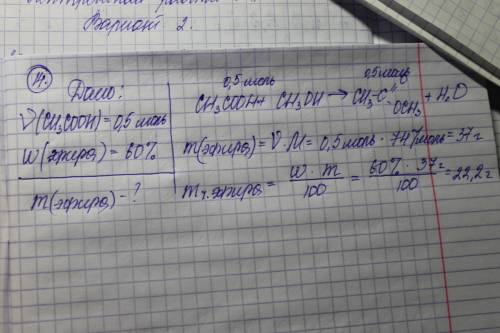 Вариант 2.
4.
Дано:
ν(CH₃COOH)=0,5 моль
W(эфира)=60%
m(эфира)-?
0,5 моль 0,5 моль
CH₃COOH+ CH₃OH → CH₃-C OCH₃ + H₂O
m(эфира)= ν·M= 0,5 моль · 74 г/моль=37 г
m ч.эфира= W·m / 100 = 60%·37 г / 100 =22,2 г